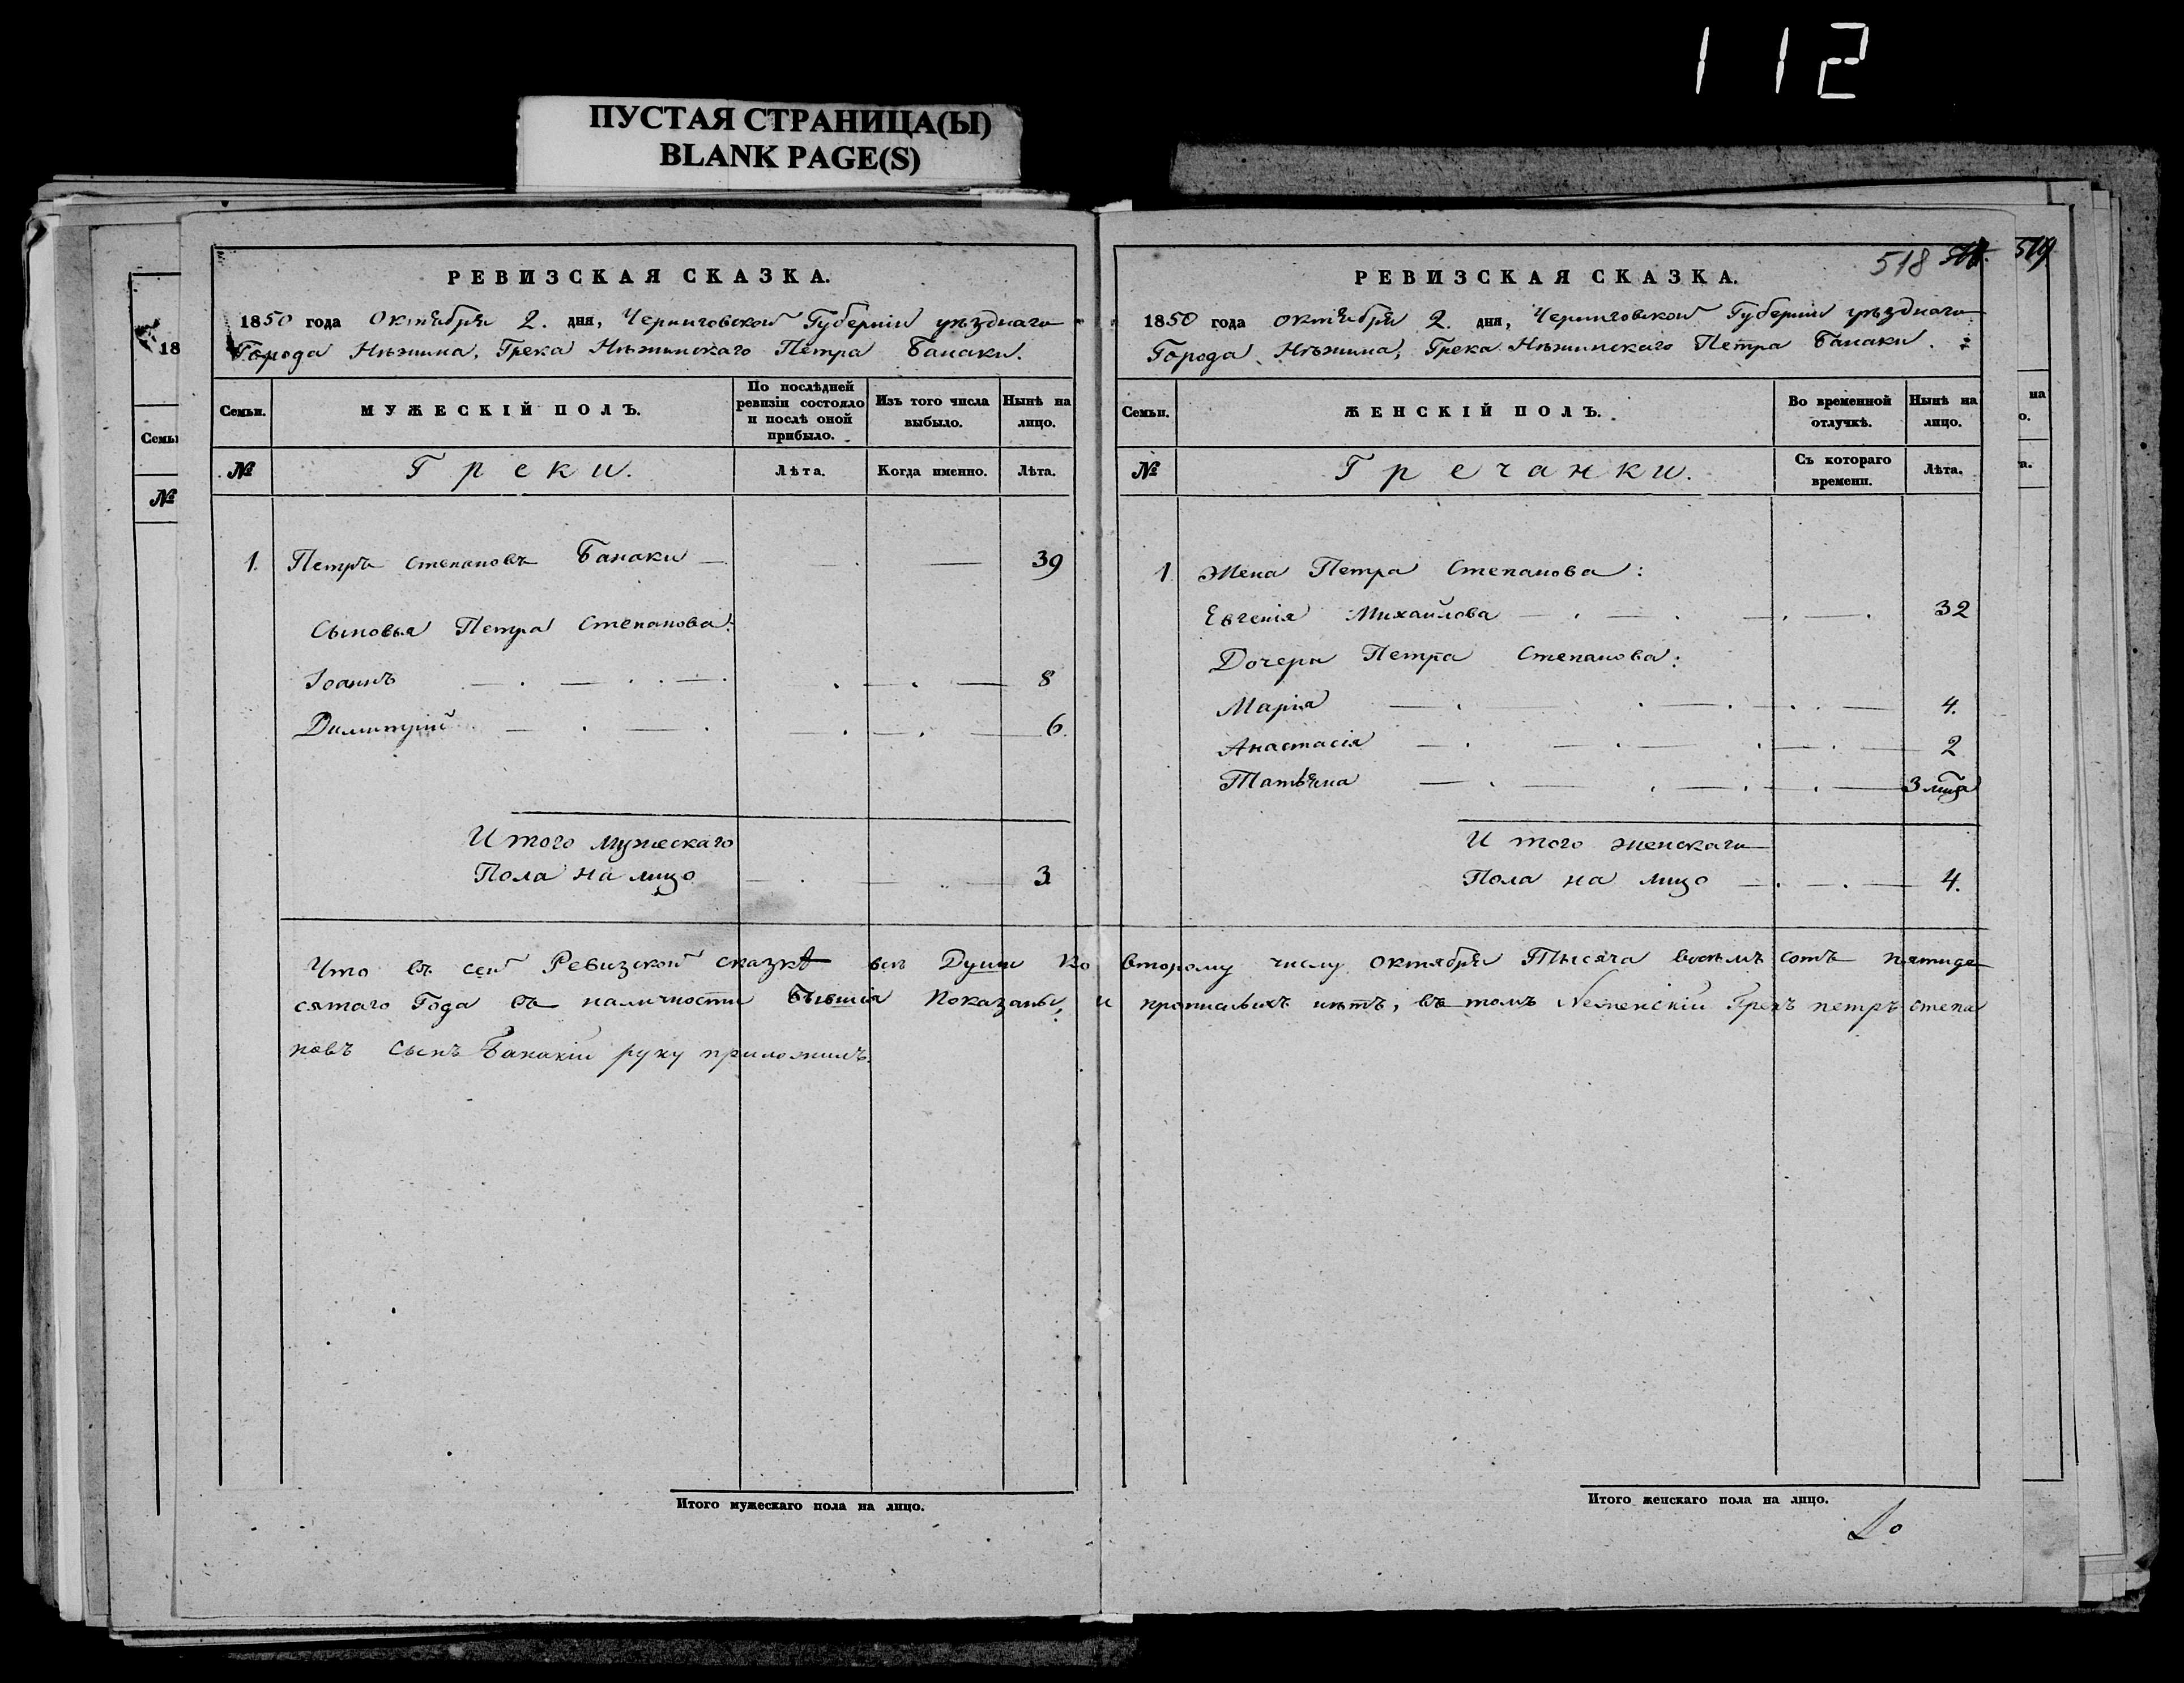 112
ПУСТАЯ СТРАНИЦА(Ы)
BLANK PAGE(S)
РЕВИЗСКАЯ СКАЗКА.
1850 года Октября 2. дня, Черниговской Губерніи уѣзднаго
Города Нѣжина, Грека Нѣжинскаго Петра Банаки.
Семьи. МУЖЕСКІЙ ПОЛЪ. По послѣдней ревизіи состояло и послѣ оной прибыло. Изъ того числа выбыло. Нынѣ на лицо.
№ Греки. Лѣта. Когда именно. Лѣта.
1. Петръ Степановъ Банаки — 39
Сыновья Петра Степанова:
Іоаннъ 8
Димитрій 6.
Итого мужескаго
Пола на лицо 3
Что въ сей Ревизской сказкѣ всѣ Души ко
сятаго Года въ наличности бывшія показаны, и
новъ сынъ Банакій руку приложилъ.
Итого мужескаго пола на лицо.
518
РЕВИЗСКАЯ СКАЗКА.
1850 года октября 2. дня, Черниговской Губерніи уѣзднаго
Города Нѣжина, Грека Нѣжинскаго Петра Банаки.
Семьи. ЖЕНСКІЙ ПОЛЪ. Во временной отлучкѣ. Нынѣ на лицо.
№ Гречанки. Съ котораго времени. Лѣта.
1 Жена Петра Степанова:
Евгенія Михайлова 32
Дочери Петра Степанова:
Марія 4.
Анастасія 2
Татьяна 3
Итого женскаго
Пола на лицо 4.
второму числу октября Тысяча восѣмъ сотъ пятиде
прописныхъ нѣтъ, въ томъ Неженскій Грекъ петръ степа
Итого женскаго пола на лицо.
519
18
Семьи
№
на
о.
а.